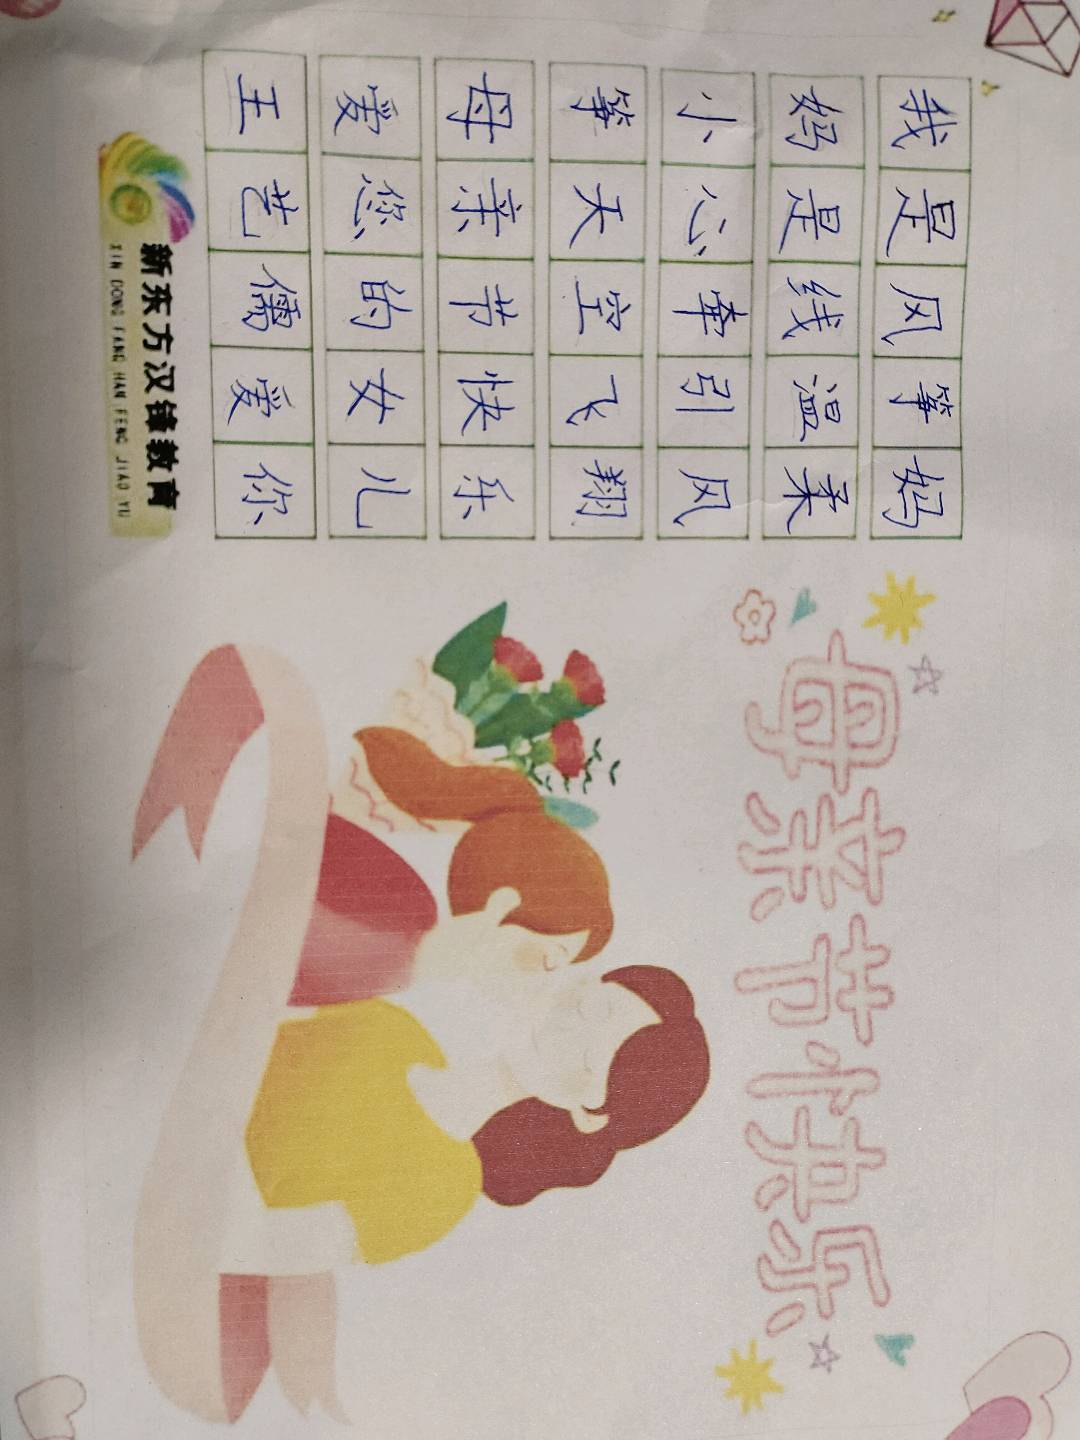 我是风筝妈
妈是线温柔
小心牵引风
筝天空飞翔
母亲节快乐
爱您的女儿
王艺儒爱你
新东方汉锋教育
XIN DONG FANG HAN FENG JIAO YU
母亲节快乐